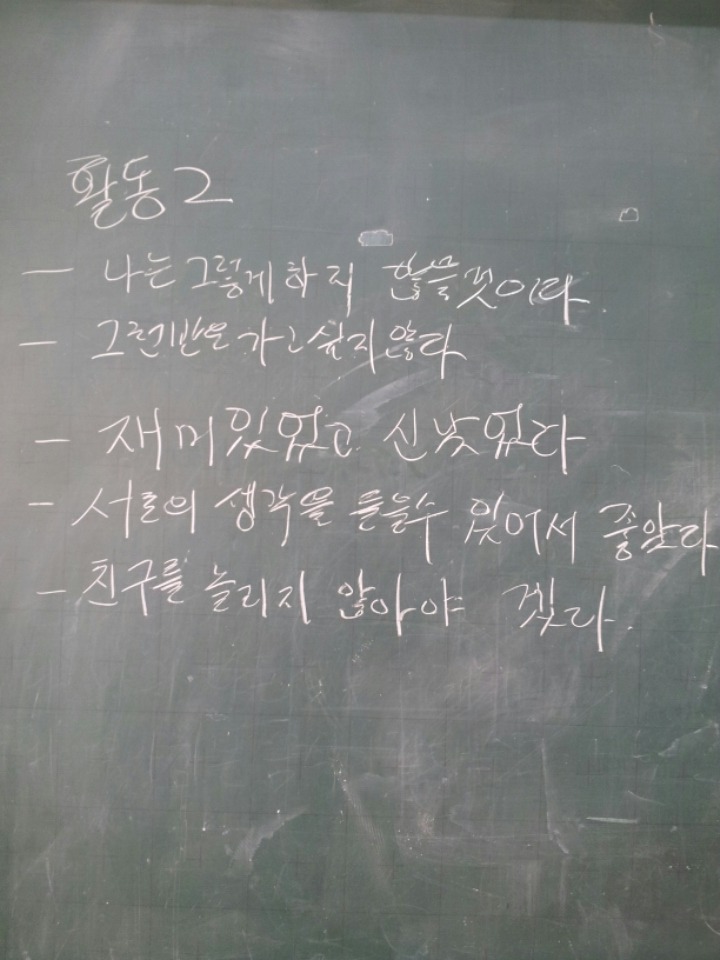 활동 2
- 나는 그렇게 하지 않을 것이다.
- 그런 반은 가고 싶지 않다
- 재미있었고 신났었다
- 서로의 생각을 들을 수 있어서 좋았다
- 친구를 놀리지 않아야 겠다.